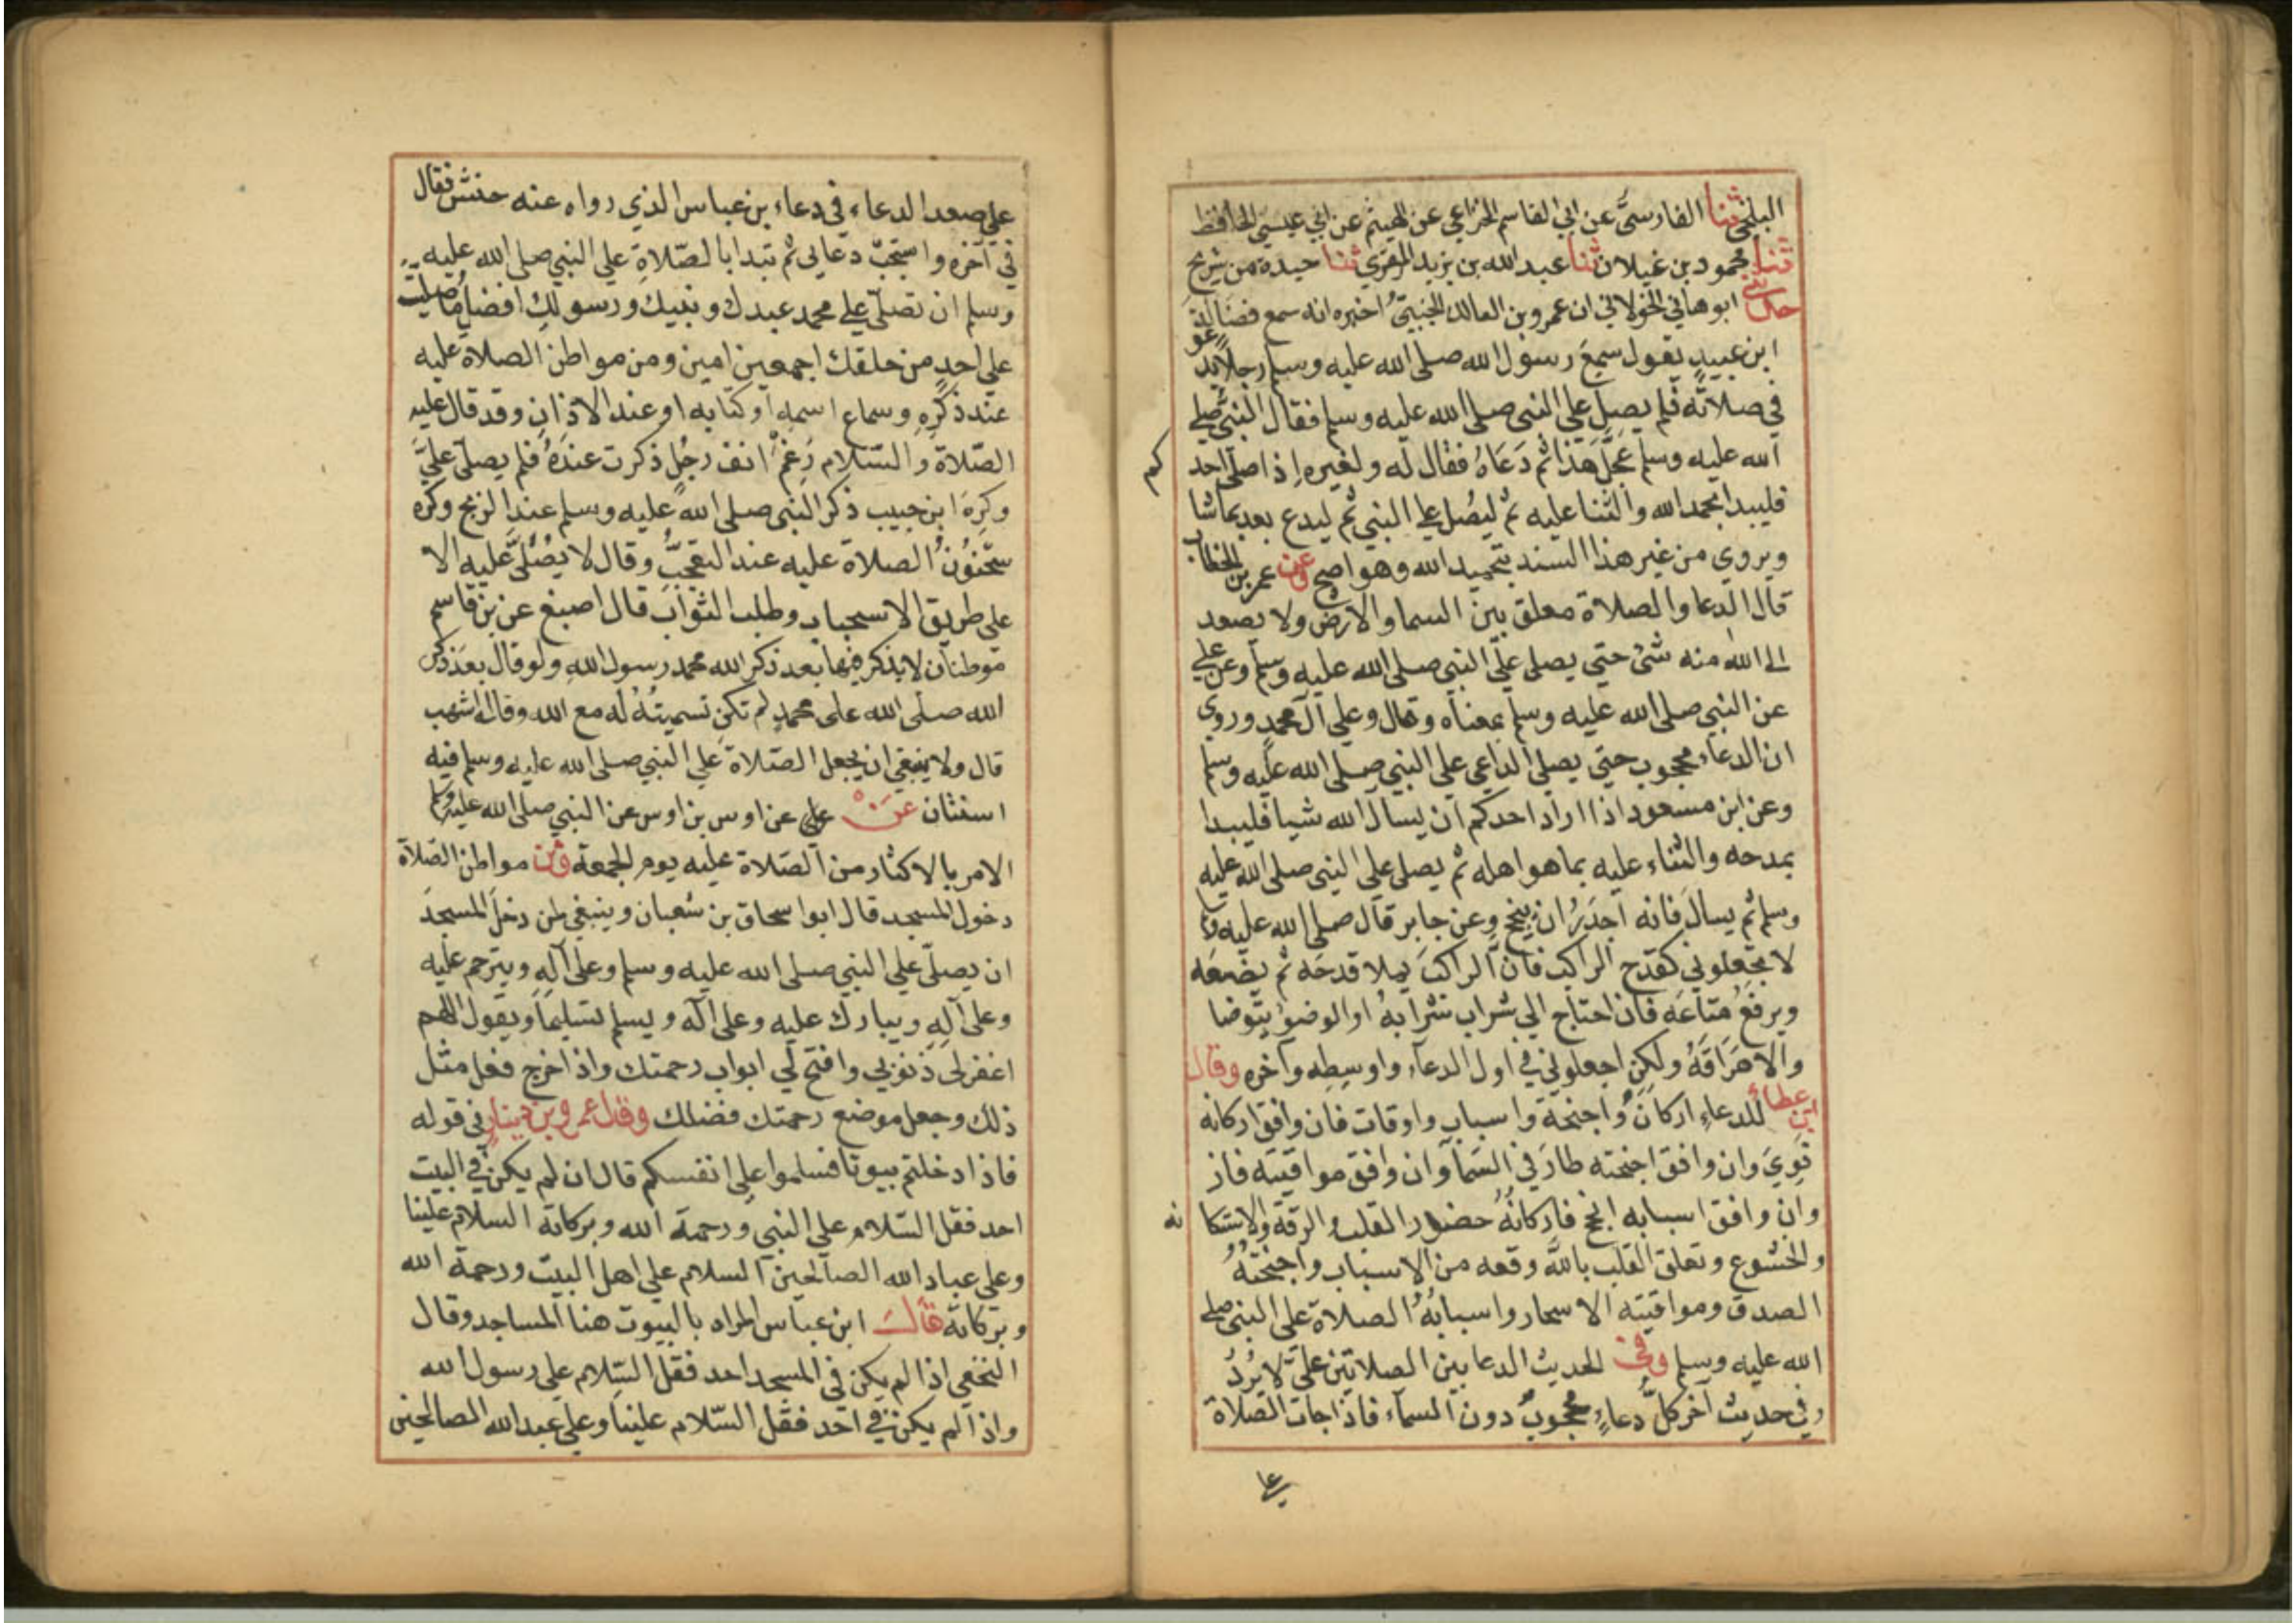 البلخي ثنا الفارسيّ عن ابي القاسم الخزاعي عن الهيثم عن ابي عيسي الحافظ
ثنا محمود بن غيلان ثنا عبد الله بن يزيد المقري ثنا حيدة من شريح
حدثني ابو هاني الخولاني ان عمرو بن المالك الجنبيّ اخبره انه سمع فضالة
ابن عبيد يقول سمع رسول الله صلى الله عليه وسلم رجلا يدعو
في صلاته فلم يصل علي النبي صلى الله عليه وسلم فقال النبي صلي
الله عليه وسلم عجل هذا ثم دعاه فقال له ولغيره اذا صلى احد
كم
فليبدا بحمد الله والثنا عليه ثم ليصل علي النبي ثم ليدع بعد بما شا
ويروي من غير هذا السند بتحميد الله وهو اصح وعن عمر بن الخطاب
قال الدعا والصلاة معلق بين السما والارض ولا يصعد
الى الله منه شئ حتي يصلى علي النبي صلى الله عليه وسلم وعن علي
عن النبي صلى الله عليه وسلم بمعناه وقال وعلي آل محمد وروي
ان الدعاء محجوب حتي يصلي الداعي علي النبي صلى الله عليه وسلم
وعن ابن مسعود اذا اراد احدكم ان يسال الله شيا فليبدا
بمدحه والثناء عليه بما هو اهله ثم يصلي علي النبي صلى الله عليه
وسلم ثم يسال فانه اجدر ان ينجح وعن جابر قال صلى الله عليه وسلم
لا تجعلوني كقدح الراكب فان الراكب يملا قدحه ثم يضعه
ويرفع متاعه فان احتاج الي شراب شرابه او الوضوء يتوضا
والا هراقه ولكن اجعلوني في اول الدعاء واوسطه وآخره وقال
ابن عطاء للدعاء اركان واجنحة واسباب واوقات فان وافق اركانه
قوي وان وافق اجنحته طار في السما وان وافق مواقيته فاز
وان وافق اسبابه انجح فاركانه حضور القلب والرقة والاستكا
نه
والخشوع وتعلق القلب بالله وقعه من الاسباب واجنحته
الصدق ومواقيته الاسحار واسبابه الصلاة على النبي صلي
الله عليه وسلم وفي الحديث الدعا بين الصلاتين علي لا يرد
وفي حديث آخر كل دعاء محجوب دون السماء فاذا جات الصلاة
علي صعد الدعاء في دعاء بن عباس الذي رواه عنه حنش فقال
في آخره واستجب دعايي ثم تبدا بالصلاة علي النبي صلى الله عليه
وسلم ان تصلى علي محمد عبدك ونبيك ورسولك افضل ما صليت
علي احد من خلقك اجمعين امين ومن مواطن الصلاة عليه
عند ذكره وسماع اسمه او كتابه او عند الاذان وقد قال عليه
الصلاة والسلام رغم انف رجل ذكرت عنده فلم يصلى عليّ
وكره ابن حبيب ذكر النبي صلى الله عليه وسلم عند الذبح وكره
سحنون الصلاة عليه عند التعجب وقال لا يصلى عليه الا
على طريق الاسحباب وطلب الثواب قال اصبغ عن بن قاسم
موطنان لا يذكر فيها بعد ذكر الله محمد رسول الله ولو قال بعد ذكر
الله صلى الله على محمد لم تكن تسميته له مع الله وقال اشهب
قال ولا ينبغي ان يجعل الصلاة علي النبي صلى الله عليه وسلم فيه
استنان عن علي عن اوس بن اوس عن النبي صلى الله عليه وسلم
الامر بالاكثار من الصلاة عليه يوم الجمعة ومن مواطن الصلاة
دخول المسجد قال ابو اسحاق بن شعبان وينبغي لمن دخل المسجد
ان يصلي علي النبي صلى الله عليه وسلم وعلي آله ويترحم عليه
وعلى آله ويبارك عليه وعلى آله ويسلم تسليما ويقول اللهم
اغفر لى ذنوبي وافتح لي ابواب رحمتك واذا خرج فعل مثل
ذلك وجعل موضع رحمتك فضلك وقال عمرو بن دينار في قوله
فاذا دخلتم بيوتا فسلموا علي انفسكم قال ان لم يكن في البيت
احد فقل السلام علي النبي ورحمة الله وبركاته السلام علينا
وعلي عباد الله الصالحين السلام علي اهل البيت ورحمة الله
وبركاته قال ابن عباس المراد بالبيوت هنا المساجد وقال
النخعي اذا لم يكن في المسجد احد فقل السلام علي رسول الله
واذا لم يكن في احد فقل السلام علينا وعلي عبد الله الصالحين
علي